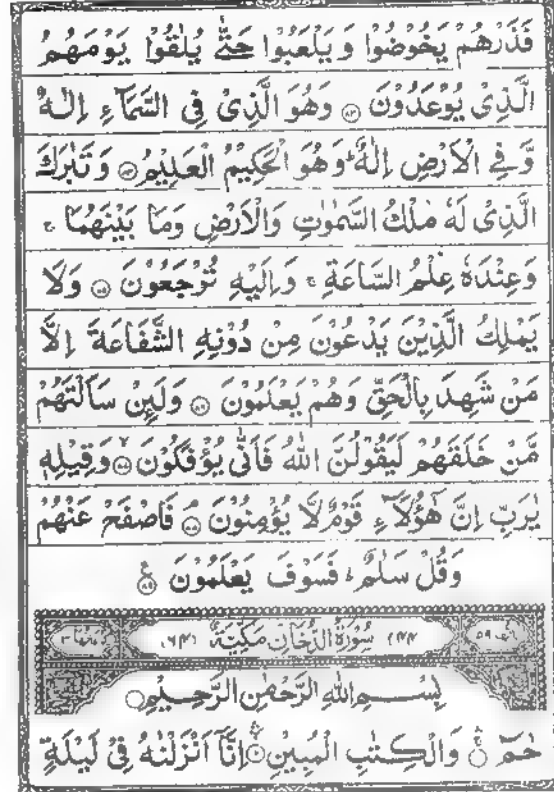 فَذَرْهُمْ يَخُوْضُوْا وَيَلْعَبُوْا حَتّٰى يُلٰقُوْا يَوْمَهُمُ
الَّذِىْ يُوْعَدُوْنَ ﴿٨٣﴾ وَهُوَ الَّذِىْ فِى السَّمَآءِ اِلٰهٌ
وَّفِى الْاَرْضِ اِلٰهٌ ؕ وَهُوَ الْحَكِيْمُ الْعَلِيْمُ ﴿٨٤﴾ وَتَبٰرَكَ
الَّذِىْ لَهٗ مُلْكُ السَّمٰوٰتِ وَالْاَرْضِ وَمَا بَيْنَهُمَا ۚ
وَعِنْدَهٗ عِلْمُ السَّاعَةِ ۚ وَاِلَيْهِ تُرْجَعُوْنَ ﴿٨٥﴾ وَلَا
يَمْلِكُ الَّذِيْنَ يَدْعُوْنَ مِنْ دُوْنِهِ الشَّفَاعَةَ اِلَّا
مَنْ شَهِدَ بِالْحَقِّ وَهُمْ يَعْلَمُوْنَ ﴿٨٦﴾ وَلَئِنْ سَاَلْتَهُمْ
مَّنْ خَلَقَهُمْ لَيَقُوْلُنَّ اللّٰهُ فَاَنّٰى يُؤْفَكُوْنَ ﴿٨٧﴾ وَقِيْلِهٖ
يٰرَبِّ اِنَّ هٰٓؤُلَآءِ قَوْمٌ لَّا يُؤْمِنُوْنَ ﴿٨٨﴾ فَاصْفَحْ عَنْهُمْ
وَقُلْ سَلٰمٌ ؕ فَسَوْفَ يَعْلَمُوْنَ ﴿٨٩﴾
(٤٤) سُوْرَةُ الدُّخَانِ مَكِّيَّةٌ (٦٤)
بِسْمِ اللّٰهِ الرَّحْمٰنِ الرَّحِيْمِ
حٰمٓ ﴿١﴾ وَالْكِتٰبِ الْمُبِيْنِ ﴿٢﴾ اِنَّاۤ اَنْزَلْنٰهُ فِىْ لَيْلَةٍ